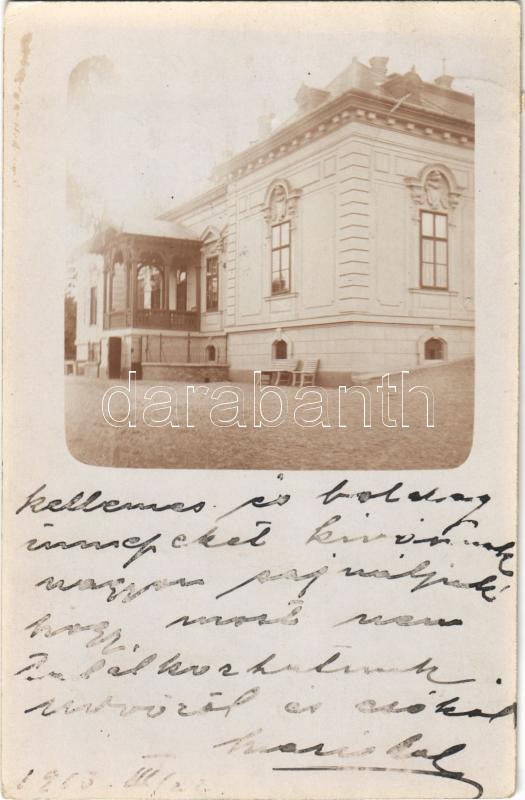 darabanth
kellemes és boldog
ünnepeket kivánunk
nagyon sajnáljuk
hogy most nem
találkozhatunk.
üdvözöl és csókol
1913. III/22